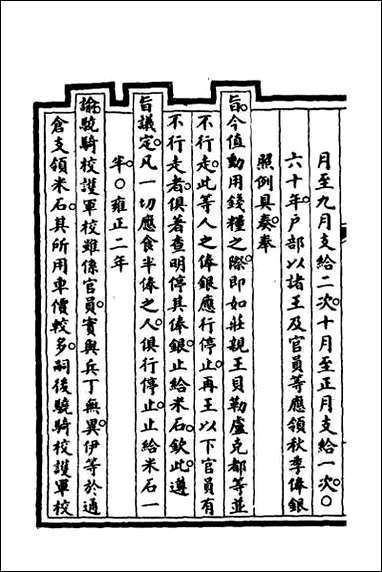 月至九月支給二次十月至正月支給一次○
六十年戶部以諸王及官員等應領秋季俸銀
照例具奏奉
旨今值動用錢糧之際即如莊親王貝勒盧克都等並
不行走此等人之俸銀應行停止再王以下官員有
不行走者俱著查明停其俸銀止給米石欽此遵
旨議定凡一切應食半俸之人俱行停止止給米石一
半○雍正二年
諭驍騎校護軍校雖係官員實與兵丁無異伊等於通
倉支領米石其所用車價較多嗣後驍騎校護軍校